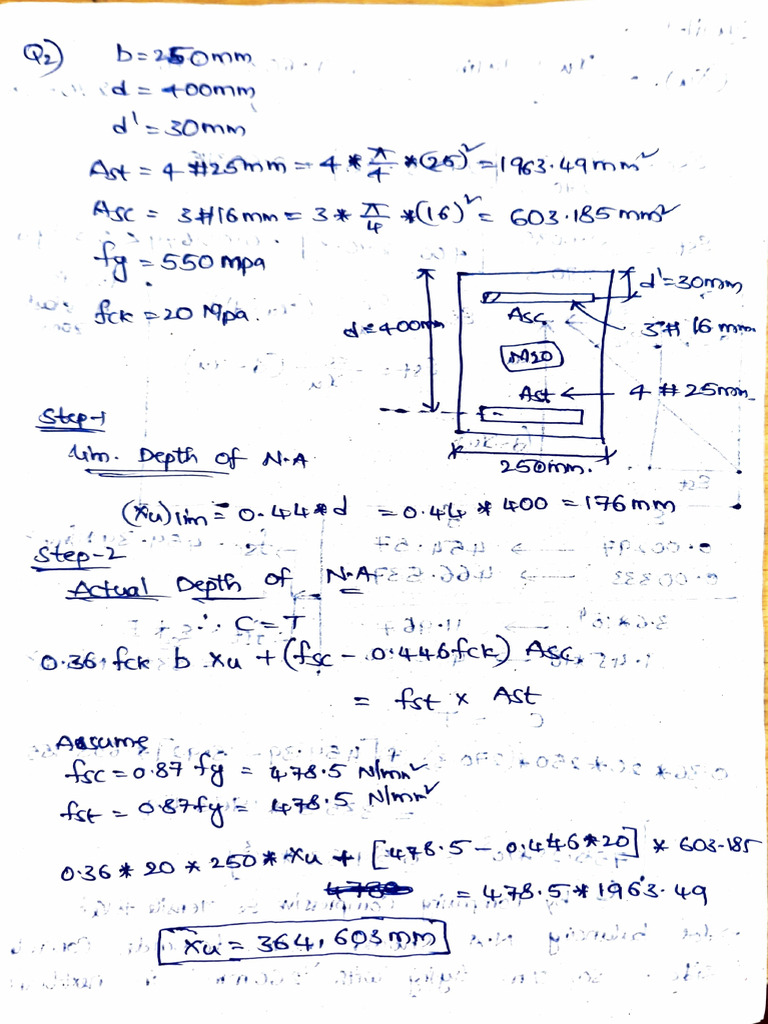 Q2) b = 250mm
d = 400mm
d' = 30mm
Ast = 4 #25mm = 4 * π/4 * (25)² = 1963.49mm²
Asc = 3#16mm = 3 * π/4 * (16)² = 603.185 mm²
fy = 550 mpa
fck = 20 Mpa.
d = 400mm
d' = 30mm
Asc
3# 16 mm
M20
Ast ← 4 # 25mm
250mm.
Step-1
Lim. Depth of N.A
(xu)lim = 0.44*d = 0.44 * 400 = 176mm
Step-2
Actual Depth of N.A
∴ C = T
0.36.fck b xu + (fsc - 0.446fck) Asc
= fst x Ast
Assume
fsc = 0.87 fy = 478.5 N/mm²
fst = 0.87fy = 478.5 N/mm²
0.36 * 20 * 250 * xu + [478.5 - 0.446*20] * 603.185
= 478.5 * 1963.49
xu = 364.603mm